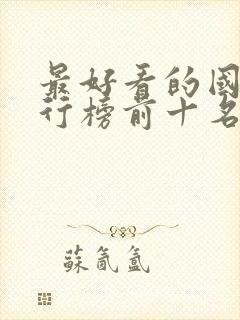 最好看的國
行榜前十名
蘇氤氲